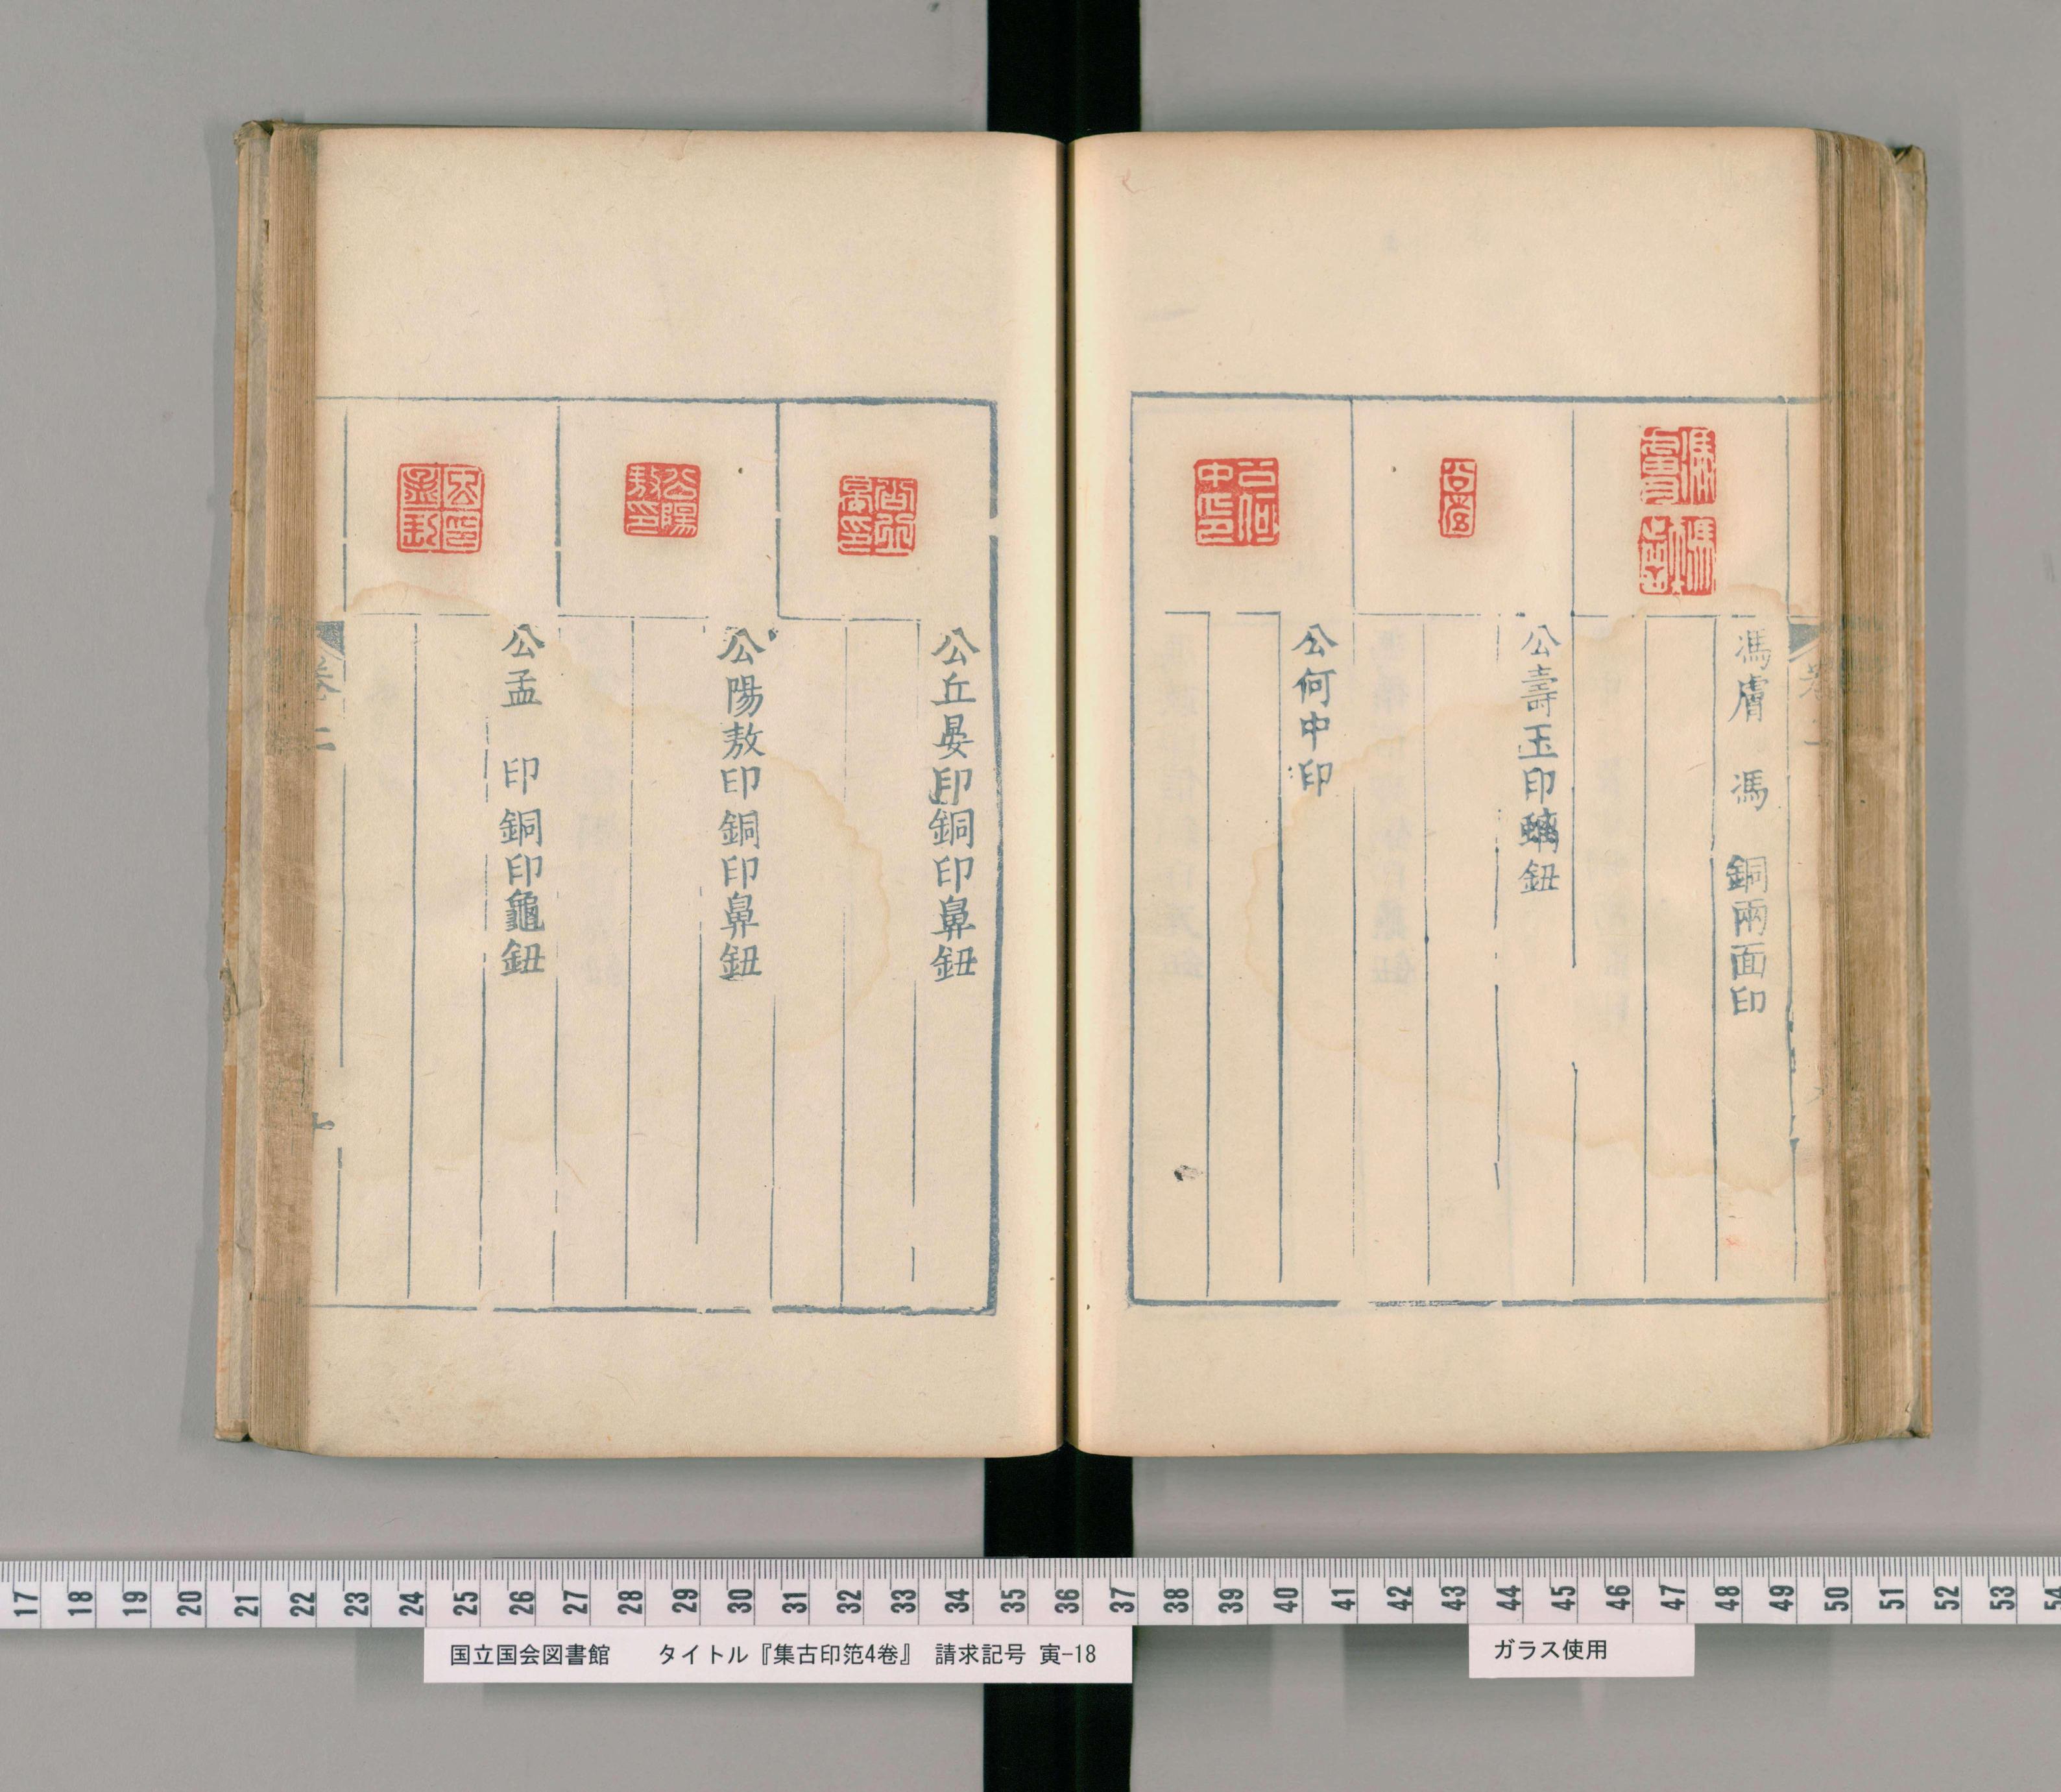 馮膚　馮　銅兩面印
公壽玉印螭鈕
公何中印
公丘晏印銅印鼻鈕
公陽敖印銅印鼻鈕
公孟　印銅印龜鈕
卷二
17 18 19 20 21 22 23 24 25 26 27 28 29 30 31 32 33 34 35 36 37 38 39 40 41 42 43 44 45 46 47 48 49 50 51 52 53 54
国立国会図書館　タイトル『集古印笵4卷』　請求記号 寅-18
ガラス使用